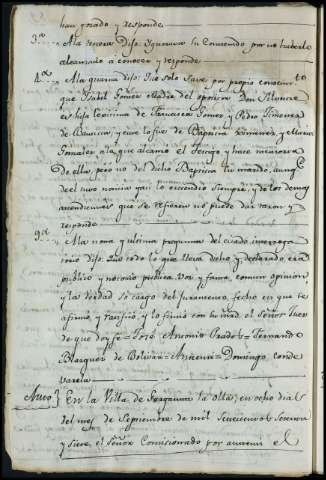 han gozado y responde.
3.ª A la tercera Dijo: Ignorava su Contenido, por no haberle
alcanzado a conocer y responde
4.ª A la quarta dijo: Que solo Save por propio conocim.to
que Isabel Gomez Madre del
es hija lexitima de Francisca Gomez y Pedro Ximenez
de y esta lo fue de Baptista Ximenez, y Maria
Gonzalez a la que alcanzó el Testigo y hace memoria
De ella, pero no del dicho Baptista su marido, aunq.e
de el uno nomino lo oyó siempre, y de los demas
ascendientes que se refieren no puede dar razon y
responde
9.ª A la nona y ultima pregunta del citado interroga
torio dijo: Que todo lo que lleva dicho y declarado es
publico y notorio publica voz y fama, comun opinion
y la Verdad so cargo del Juramento fecho en que se
afirmó, y ratificó, y lo firmó con su mrd. el señor Juez
de que doy fe = José Antonio Prado = Fernando
Blazquez de Bolivar = Antemi = Domingo Conde
Varela
Auto En la Villa de Fregaxina la Alta, en ocho dias
del mes de Septiembre de mil setecientos setenta
y siete, el señor Comisionado por antemi el